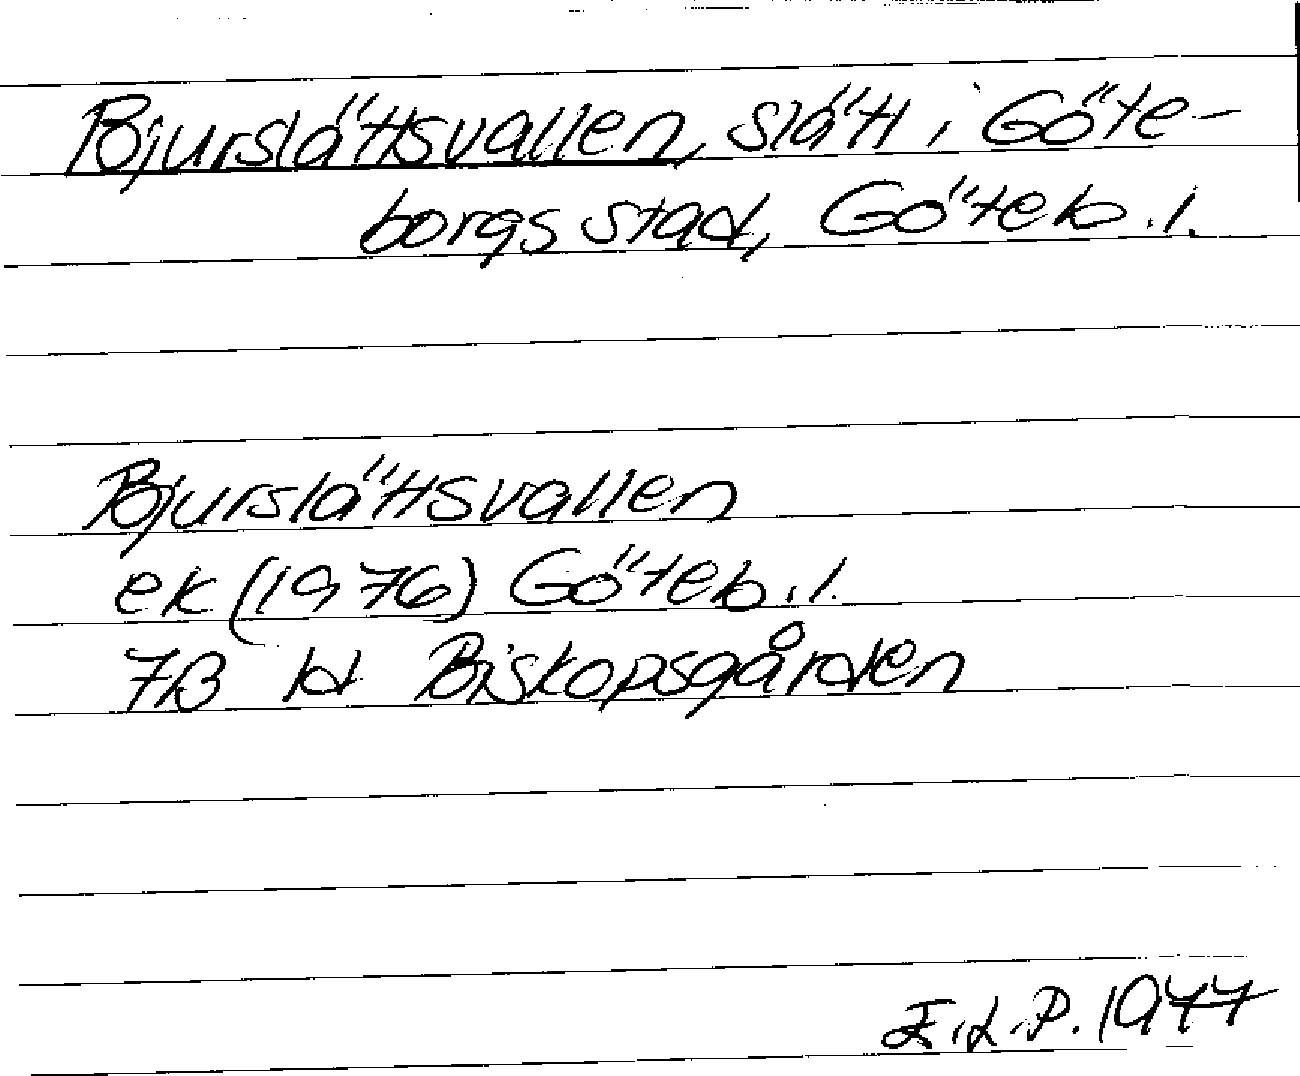 Bjurslättsvallen, slätt i Göte-
borgs stad, Göteb. l.
Bjurslättsvallen
ek (1976) Göteb. l.
7B 1d Biskopsgården
E.L.P. 1977